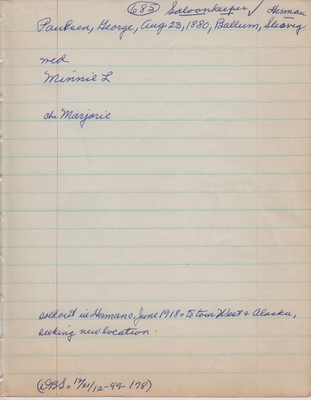 (685) Saloonkeeper ✓ Herman
Paulsen, George, Aug 23, 1880, Ballum, Slesvig
wed
Minnie L
ch: Marjorie
sold out in Herman c. June 1918 to tour West & Alaska,
seeking new location.